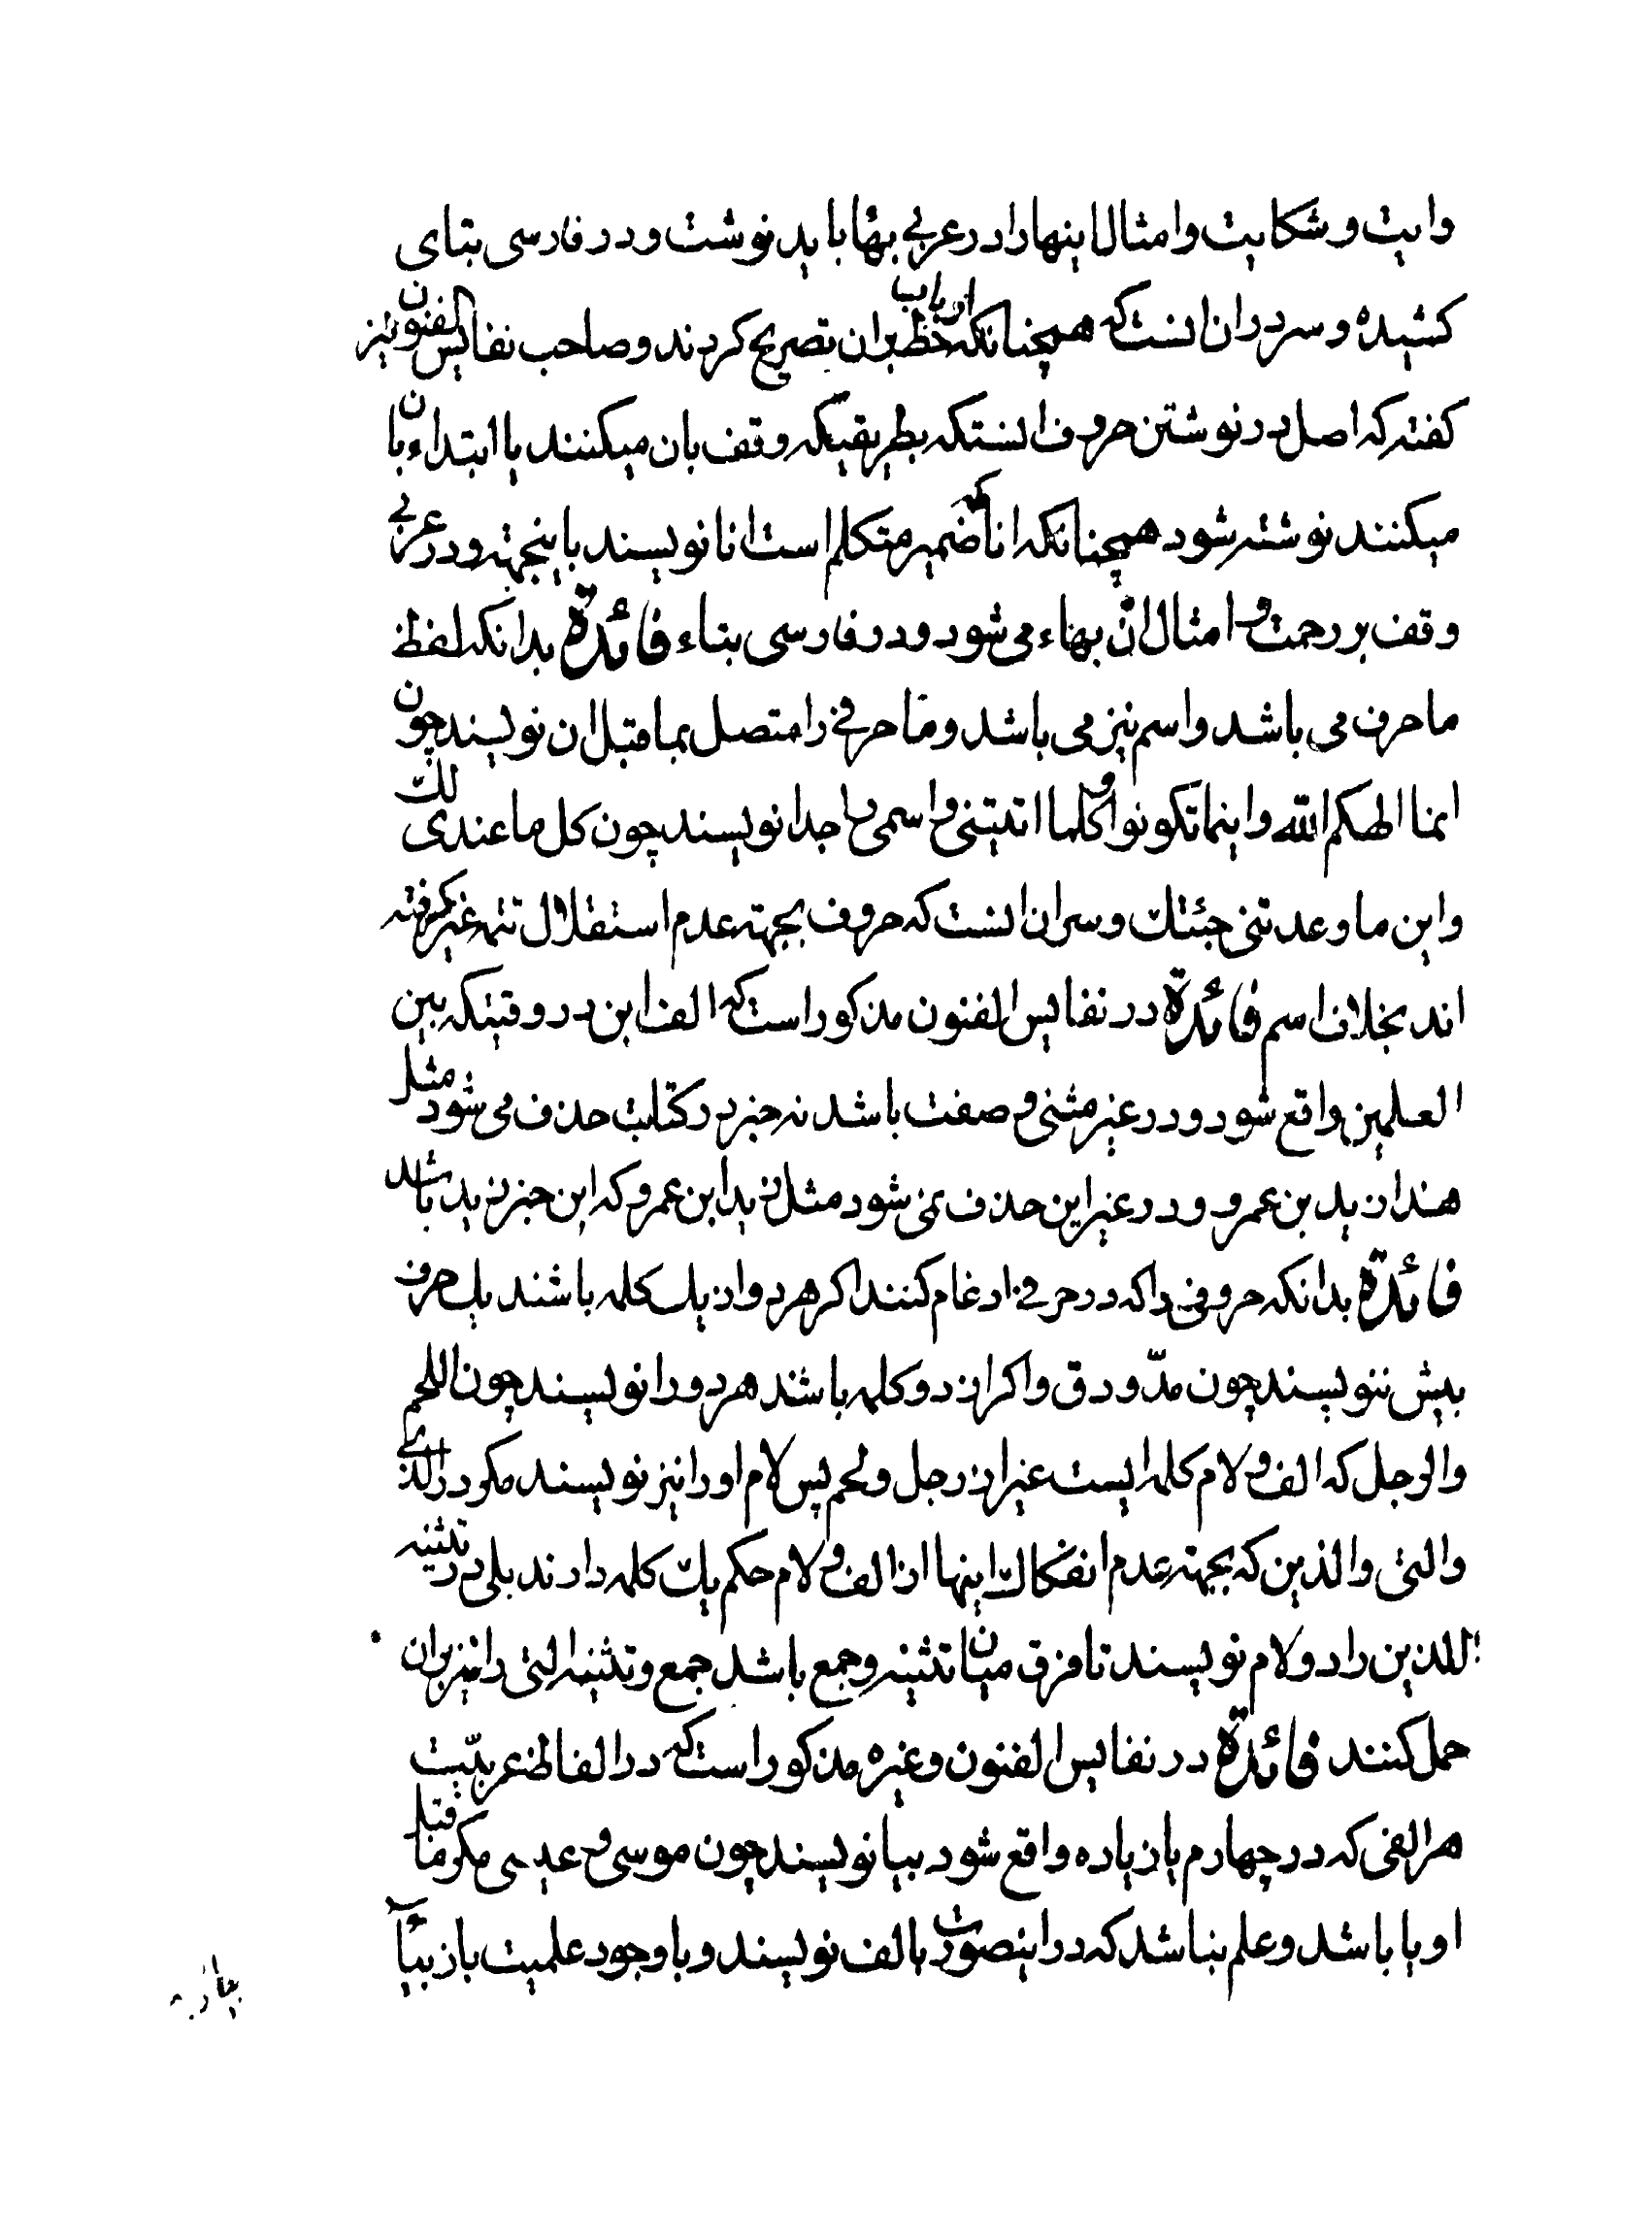 وایت و شکایت و امثال اینها را در عربی بها باید نوشت و در فارسی بتای
کشیده و سر در ان انست که همچنانکه ارباب خط بران تصریح کردند و صاحب نفایس الفنون نیز
کفته که اصل در نوشتن حروف انستکه بطریقیکه وقف بان میکنند یا ابتداء بان
میکنند نوشته شود همچنانکه انا که ضمیر متکلم است انا نویسند باینجهته و در عربی
وقف بر رحمت و امثال ان بهاء می شود و در فارسی بتاء فائدة بدانکه لفظ
ما حرف می باشد و اسم نیز می باشد و ما حرفی را متصل بماقبل ان نویسند چون
انما الهکم الله و اینما تکونوا و کلما اتیتنی و اسمی را جدا نویسند چون کل ما عندی لک
و این ما وعدتنی جئتک و سر ان انست که حروف بجهته عدم استقلال تتمه غیر کرفته
اند بخلاف اسم فائدة در نفایس الفنون مذکور است که الف ابن در وقتیکه بین
العلمین واقع شود و در غیر مثنی و صفت باشد نه خبر در کتابت حذف می شود مثل
هذا زید بن عمرو و در غیر این حذف نمی شود مثل زید ابن عمرو که ابن خبر زید باشد
فائدة بدانکه حروفی را که در حرفی ادغام کنند اکر هر دو از یک کلمه باشند یک حرف
بیش ننویسند چون مدّ و دق و اکر از دو کلمه باشند هر دو را نویسند چون اللحم
و الرجل که الف و لام کلمه ایست غیر از رجل و لحم پس لام او را نیز نویسند مکر در الذی
و التی و الذین که بجهته عدم انفکاک اینها از الف و لام حکم یک کلمه دارند بلی در تثنیه
اللذین را دو لام نویسند تا فرق میان تثنیه و جمع باشد جمع و تثنیه التی را نیز بران
حمل کنند فائدة در نفایس الفنون و غیره مذکور است که در الفاظ عربیّت
هر الفی که در چهارم یا زیاده واقع شود بیا نویسند چون موسی و عیسی مکر ماقبل
او یا باشد و علم نباشد که در اینصورت بالف نویسند و با وجود علمیت باز بیا